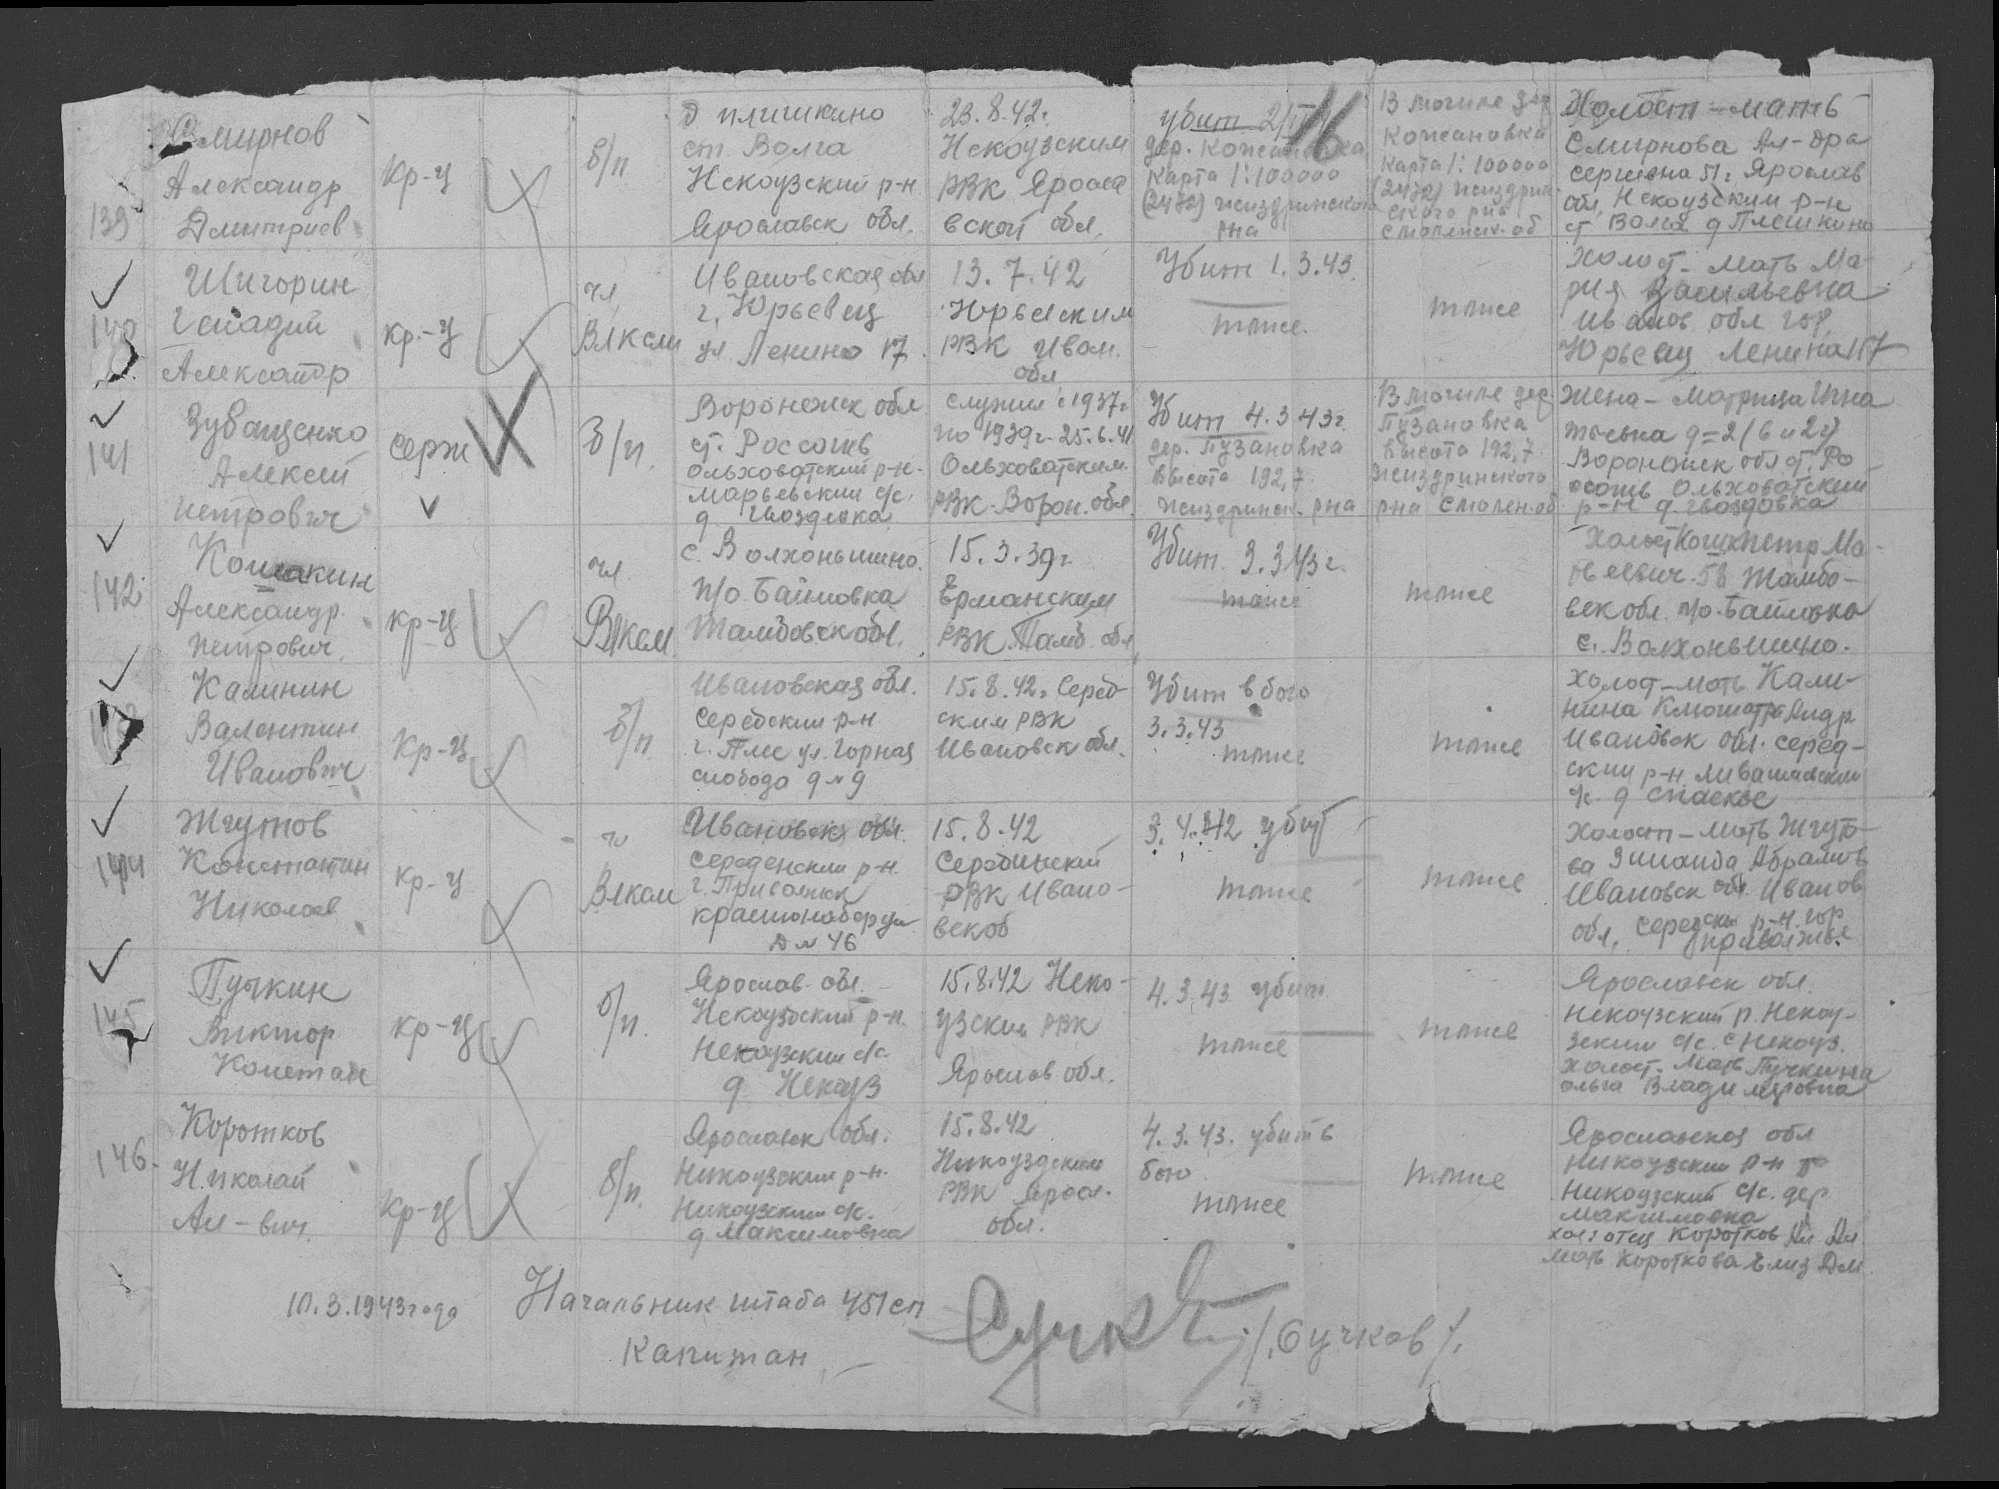 139
Смирнов
Александр
Дмитриев
кр-ц
б/п
д плишкино
ст. Волга
Некоузский р-н
Ярославск обл.
23.8.42г.
Некоузским
РВК Яросла
вской обл.
убит 2/
дер. Кожановка
карта 1:100000
(2472) жиздринского
рна
16
В могиле дер
Кожановка
карта 1:100000
(2472) жиздрин
ского рна
Смоленск. об
Холост - мать
Смирнова Ал-дра
сергеевна 51г Ярослав
обл, Некоузским р-н
ст Волга д Плешкино
140
Шигорин
Генадий
Александр
кр-ц
чл
ВЛКСМ
Ивановская обл
г. Юрьевец
ул. Ленино 17
13.7.42
Юрьевским
РВК Иван.
обл
Убит 1.3.43
тоже.
тоже
Холост - мать Ма-
рия Васильевна
Иванов обл гор.
Юрьевец Ленина 117
141
Зубащенко
Алексей
петрович
серж
б/п.
Воронежск обл
ст. Россошь
ольховатский р-н
марьевский с/с.
д. Гвоздевка
служил с 1937г
по 1939г. 25.6.41
Ольховатским
РВК Ворон. обл.
Убит 4.3.43г.
дер. Пузановка
высота 192,7.
жиздринск. рна
В могиле дер
Пузановка
высота 192,7
жиздринского
рна Смолен.об
жена - Матрица Игна
тьевна д=2 (6 и 2г)
Воронежск обл ст. Ро
ссошь Ольховатский
р-н д. гвоздовка
142
Кошакин
Александр
петрович.
кр-ц
чл
ВЛКСМ
с. Волхоньшино.
п/о. Байловка
Тамбовск обл.
15.3.39г
Ерманским
РВК Тамб. обл
Убит. 3.3.43г.
тоже
тоже
Холост Кошк петр Ма-
твеевич. 58 Тамбо-
вск обл. п/о. Байловка
с. Волхоньшино.
Калинин
Валентин
Иванович
Кр-ц
б/п
Ивановская обл.
Середский р-н
г. Плес ул. Горная
слобода д № 9
15.8.42г Серед-
ским РВК
Ивановск обл.
Убит в бою
3.3.43
тоже
тоже
Холост - мать Кали-
нина Клеопатра Андр
Ивановск обл. серед-
ский р-н
с/с. д Спаское
144
Жгутов
Константин
Николаев
кр-ц
чл
ВЛКСМ
Ивановск обл.
Середенский р-н.
г. Приволжск
Д № 46
15.8.42
Серединский
РВК Ивано-
вск об
3.4.42 убит
тоже
тоже
Холост - мать Жгуто-
ва Зинаида Абрамов
Ивановск обл. Иванов
обл, Середский р-н. гор
приволжье
145
Пучкин
Виктор
Констан
кр-ц
б/п.
Ярослав обл.
Некоузский р-н.
Некоузский с/с.
д. Некоуз
15.8.42 Неко-
узским РВК
Ярослав обл.
4.3.43 убит
тоже
тоже
Ярославск обл.
Некоузский р. Некоу-
зский с/с. с Некоуз.
Холост. Мать Пучкина
ольга Владимировна
146.
Коротков
Николай
Ал-вич.
Кр-ц
б/п.
Ярославск обл.
Никоузский р-н.
Никоузский с/с.
д Максимовка
15.8.42
Никоузским
РВК Яросл.
обл.
4.3.43. убит в
бою
тоже
тоже
Ярославская обл
Никоузский р-н
Никоузский с/с. дер.
Максимовка
хол: отец Коротков Ал Ал
Мать Короткова Елиз Дм
10.3.1943 года
Начальник штаба 451 сп
Капитан
/Сучков/.